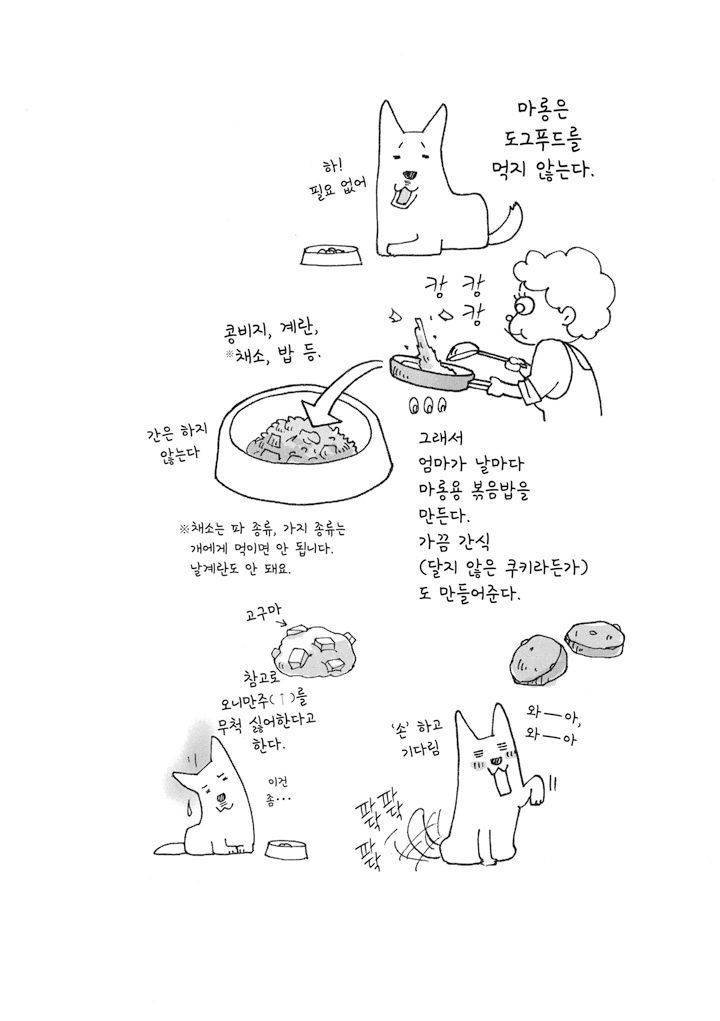 마롱은
도그푸드를
먹지 않는다.
하!
필요 없어
캉 캉
캉
콩비지, 계란,
※채소, 밥 등.
간은 하지
않는다
그래서
엄마가 날마다
마롱용 볶음밥을
만든다.
가끔 간식
(달지 않은 쿠키라든가)
도 만들어준다.
※채소는 파 종류, 가지 종류는
개에게 먹이면 안 됩니다.
날계란도 안 돼요.
고구마
참고로
오니만주(↑)를
무척 싫어한다고
한다.
이건
좀…
'손' 하고
기다림
와—아,
와—아
팍닥팍닥
팍닥